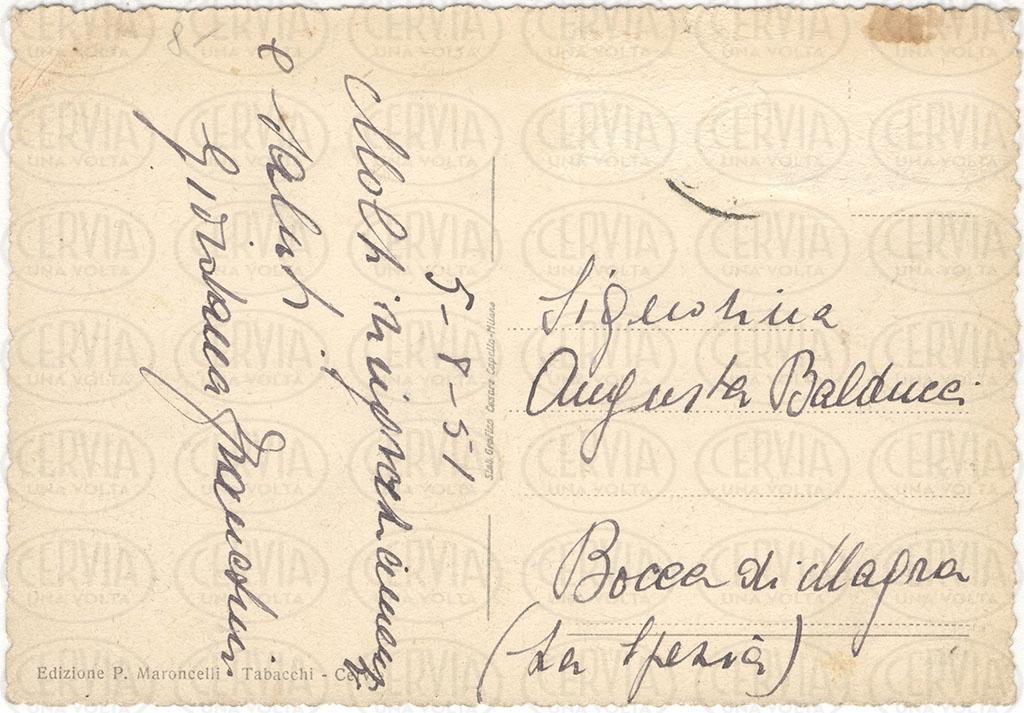 5-8-51
Molti ringraziamenti
e saluti.
Giordana Francolini
Signorina
Augusta Balducci
Bocca di Magra
(La Spezia)
Stab. Grafico Cesare Capello-Milano
Edizione P. Maroncelli - Tabacchi -
8
CERVIA
UNA VOLTA